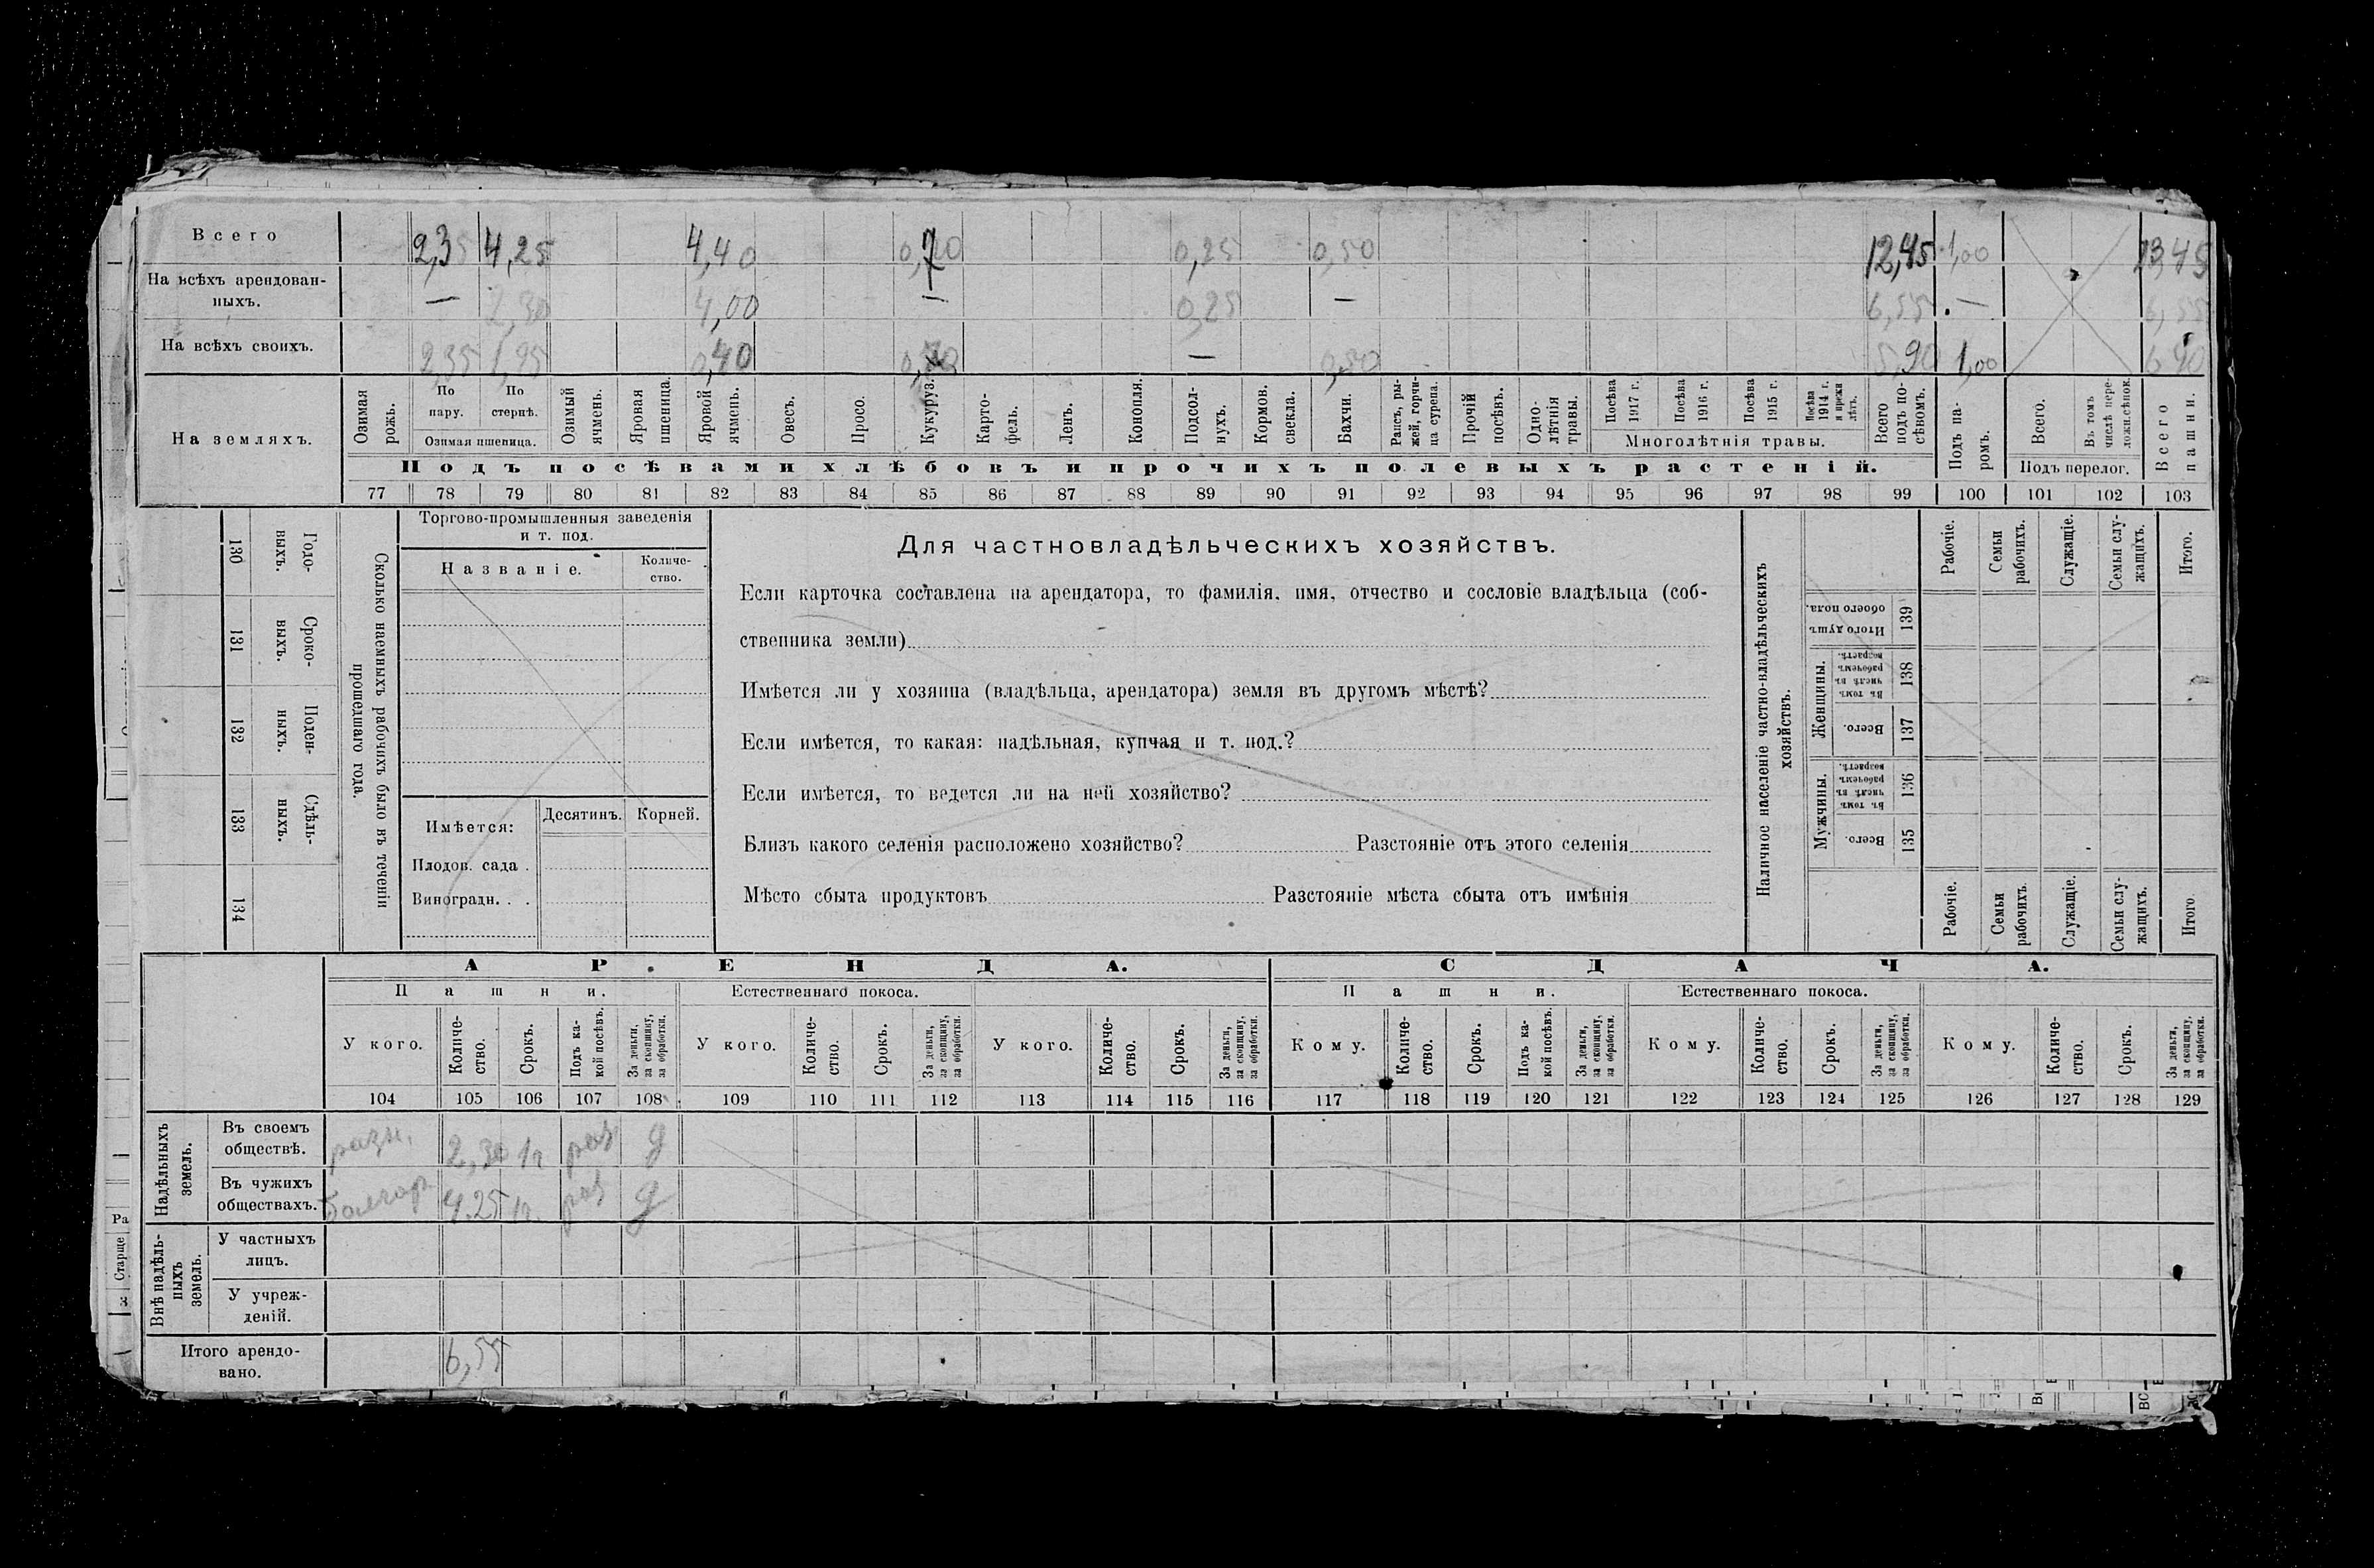 Всего 2,35 4,25 4,40 0,70 0,25 0,50 12,45 1,00 13,45
На всѣхъ арендован-
ныхъ. — 2,30 4,00 — 0,25 — 6,55 — 6,55
На всѣхъ своихъ. 2,35 1,95 0,40 0,70 — 0,50 5,90 1,00 6 90
На земляхъ.
Озимая рожь.
По пару.
По стернѣ.
Озимая пшеница.
Озимый ячмень.
Яровая пшеница.
Яровой ячмень.
Овесъ.
Просо.
Кукуруз.
Карто-
фель.
Ленъ.
Конопля.
Подсол-
нухъ.
Кормов. свекла.
Бахчи.
Рапсъ, ры-
жей, горчи-
ца сурепа.
Прочій посѣвъ.
Одно-
лѣтнія травы.
Посѣва 1917 г.
Посѣва 1916 г.
Посѣва 1915 г.
Посѣва 1914 г. и прежн лѣтъ.
Многолѣтнія травы.
Всего подъ по-
сѣвомъ.
Подъ па-
ромъ.
Всего.
Въ томъ числѣ пере-
ложн.сѣнок.
Подъ перелог.
Всего пашни.
Подъ посѣвами хлѣбовъ и прочихъ полевыхъ растеній.
77 78 79 80 81 82 83 84 85 86 87 88 89 90 91 92 93 94 95 96 97 98 99 100 101 102 103
130 Годо-
выхъ.
131 Сроко-
выхъ.
132 Поден-
ныхъ.
133 Сдѣль-
ныхъ.
134
Сколько наемныхъ рабочихъ было въ теченіи
прошедшаго года.
Торгово-промышленныя заведенія
и т. под.
Названіе. Количе-
ство.
Имѣется: Десятинъ. Корней.
Плодов. сада .
Виноградн. . .
Для частновладѣльческихъ хозяйствъ.
Если карточка составлена на арендатора, то фамилія, имя, отчество и сословіе владѣльца (соб-
ственника земли)
Имѣется ли у хозяина (владѣльца, арендатора) земля въ другомъ мѣстѣ?
Если имѣется, то какая: надѣльная, купчая и т. под.?
Если имѣется, то ведется ли на ней хозяйство?
Близъ какого селенія расположено хозяйство? Разстояніе отъ этого селенія
Мѣсто сбыта продуктовъ Разстояніе мѣста сбыта отъ имѣнія
Наличное населеніе частно-владѣльческихъ
хозяйствъ.
Рабочіе.
Семьи рабочихъ.
Служащіе.
Семьи слу-
жащихъ.
Итого.
Итого душъ обоего пола. 139
Женщины.
Въ томъ числѣ въ рабочемъ возрастѣ. 138
Всего. 137
Мужчины.
Въ томъ числѣ въ рабочемъ возрастѣ. 136
Всего. 135
Рабочіе.
Семьи рабочихъ.
Служащіе.
Семьи слу-
жащихъ.
Итого
АРЕНДА. СДАЧА.
Пашни. Естественнаго покоса. Пашни. Естественнаго покоса.
У кого.
Количе-
ство.
Срокъ.
Подъ ка-
кой посѣвъ.
За деньги, за скопщину, за обработки.
У кого.
Количе-
ство.
Срокъ.
За деньги, за скопщину, за обработки.
У кого.
Количе-
ство.
Срокъ.
За деньги, за скопщину, за обработки.
Кому.
Количе-
ство.
Срокъ.
Подъ ка-
кой посѣвъ.
За деньги, за скопщину, за обработки.
Кому.
Количе-
ство.
Срокъ.
За деньги, за скопщину, за обработки.
Кому.
Количе-
ство.
Срокъ.
За деньги, за скопщину, за обработки.
104 105 106 107 108 109 110 111 112 113 114 115 116 117 118 119 120 121 122 123 124 125 126 127 128 129
Надѣльныхъ земель.
Въ своемъ
обществѣ. разн. 2,30 1г раз д
Въ чужихъ
обществахъ. 4.25 1г. раз д
Внѣ надѣль-
ныхъ земель.
У частныхъ
лицъ.
У учреж-
деній.
Итого арендо-
вано. 6,55
Ра
Старще
З